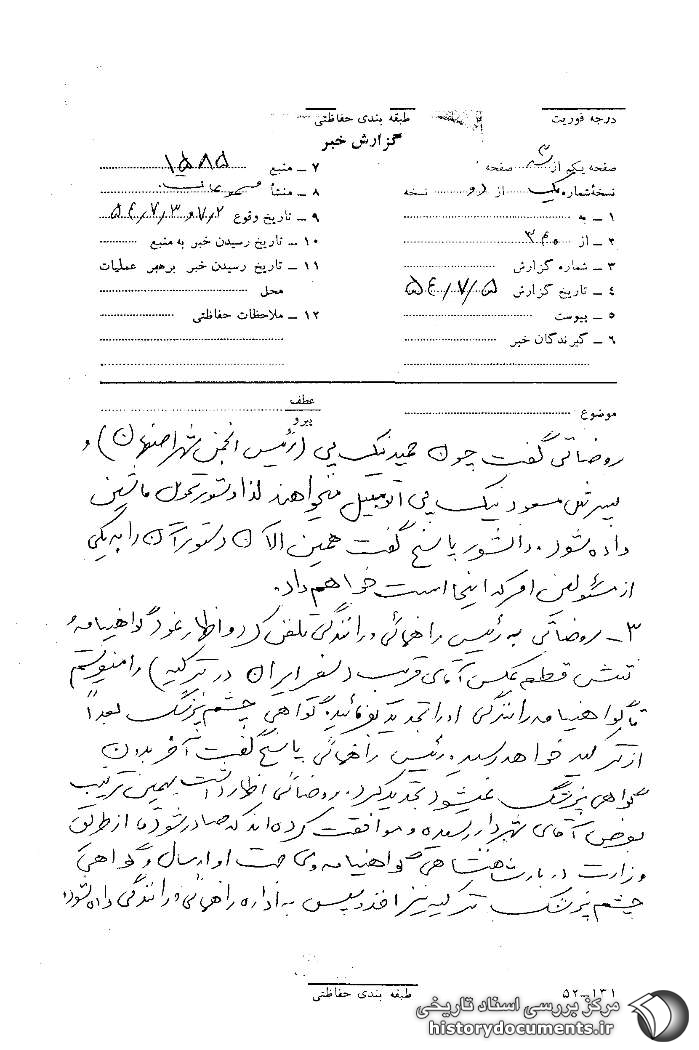 درجه فوریت
طبقه بندی حفاظتی
گزارش خبر
صفحه یکم از ۳ صفحه
نسخهٔ شماره یک از دو نسخه
۱ ـ به
۲ ـ از ۳۴۰
۳ ـ شماره گزارش
۴ ـ تاریخ گزارش ۵۴/۷/۵
۵ ـ پیوست
۶ ـ گیرندگان خبر
۷ ـ منبع ۱۵۸۵
۸ ـ منشأ
۹ ـ تاریخ وقوع ۲ و ۵۴/۷/۳
۱۰ ـ تاریخ رسیدن خبر به منبع
۱۱ ـ تاریخ رسیدن خبر برهبر عملیات
محل
۱۲ ـ ملاحظات حفاظتی
موضوع
عطف
پیرو
روضاتی گفت چون حمید نیک پی (رئیس انجمن شهر اصفهان) و
پسرش مسعود نیک پی اتومبیل میخواهند لذا دستور تحویل ماشین
داده شود. دانشور پاسخ گفت همین الان دستور آن را به یکی
از مسئولین امر که اینجا است خواهم داد.
۳ـ روضاتی به رئیس راهنمائی و رانندگی تلفن کرد و اظهار نمود گواهینامه و
شش قطعه عکس آقای قریب (سفیر ایران در ترکیه) را میفرستم
تا گواهینامه رانندگی او را تجدید بفرمائید. گواهی چشم پزشک بعداً
از ترکیه خواهد رسید. رئیس راهنمائی پاسخ گفت آخر بدون
گواهی پزشک نمیشود تجدید کرد. روضاتی اظهار داشت بهمین ترتیب
بعرض آقای شهردار رسیده و موافقت کرده اند که صادر شود تا از طریق
وزارت دربار شاهنشاهی گواهینامه وی جهت او ارسال و گواهی
چشم پزشک ترکیه نیز اخذ و سپس به اداره راهنمائی و رانندگی داده شود.
طبقه بندی حفاظتی
۵۲-۱۳۱
مرکز بررسی اسناد تاریخی
historydocuments.ir